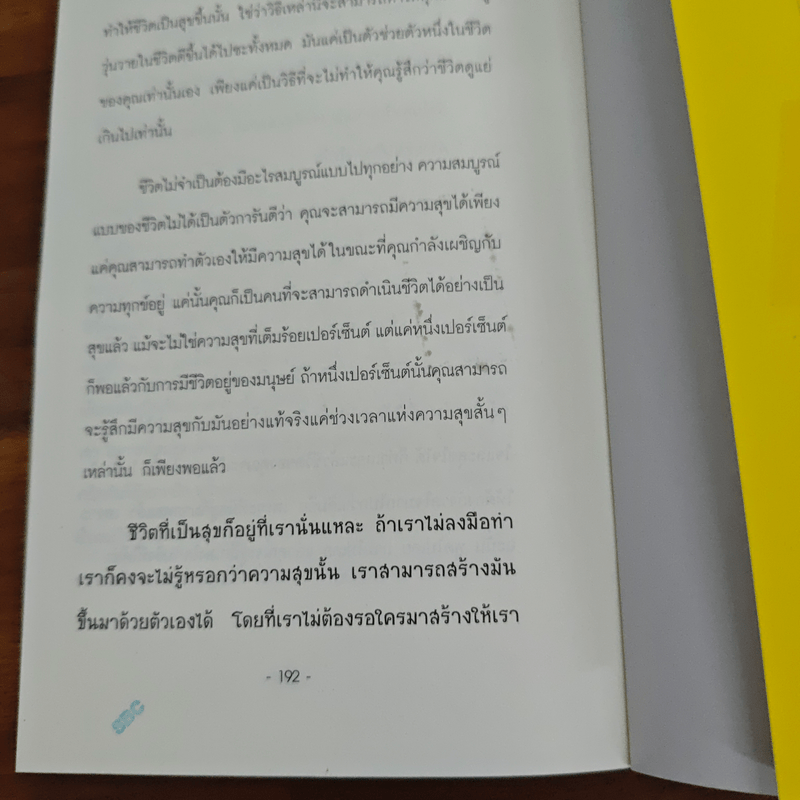 ทำให้ชีวิตเป็นสุขขึ้นนั้น ใช่ว่าวิธีเหล่านี้จะสามารถ
รุ่นวายในชีวิตดีขึ้นได้ไปซะทั้งหมด มันแค่เป็นตัวช่วยตัวหนึ่งในชีวิต
ของคุณเท่านั้นเอง เพียงแค่เป็นวิธีที่จะไม่ทำให้คุณรู้สึกว่าชีวิตดูแย่
เกินไปเท่านั้น
ชีวิตไม่จำเป็นต้องมีอะไรสมบูรณ์แบบไปทุกอย่าง ความสมบูรณ์
แบบของชีวิตไม่ได้เป็นตัวการันตีว่า คุณจะสามารถมีความสุขได้เพียง
แค่คุณสามารถทำตัวเองให้มีความสุขได้ในขณะที่คุณกำลังเผชิญกับ
ความทุกข์อยู่ แค่นั้นคุณก็เป็นคนที่จะสามารถดำเนินชีวิตได้อย่างเป็น
สุขแล้ว แม้จะไม่ใช่ความสุขที่เต็มร้อยเปอร์เซ็นต์ แต่แค่หนึ่งเปอร์เซ็นต์
ก็พอแล้วกับการมีชีวิตอยู่ของมนุษย์ ถ้าหนึ่งเปอร์เซ็นต์นั้นคุณสามารถ
จะรู้สึกมีความสุขกับมันอย่างแท้จริงแค่ช่วงเวลาแห่งความสุขสั้นๆ
เหล่านั้น ก็เพียงพอแล้ว
ชีวิตที่เป็นสุขก็อยู่ที่เรานั่นแหละ ถ้าเราไม่ลงมือทำ
เราก็คงจะไม่รู้หรอกว่าความสุขนั้น เราสามารถสร้างมัน
ขึ้นมาด้วยตัวเองได้ โดยที่เราไม่ต้องรอใครมาสร้างให้เรา
- 192 -
SBC